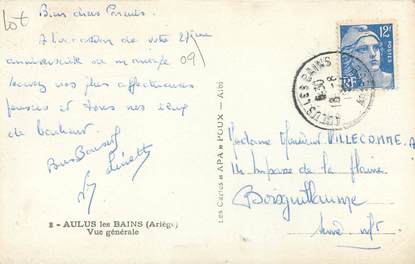 Lot
Bien chers Parents
A l'occasion de votre 27ème
anniversaire de mariage
09
recevez nos plus affectueuses
pensées et tous nos vœux
de bonheur.
Bons Baisers
Ginette
2 - AULUS les BAINS (Ariège)
Vue générale
Les Cartes "APA" POUX - Albi
12F
POSTES
RF
AULUS LES BAINS
18-8
Madame Monsieur VILLECOMME. A
Impasse de la Plaine
Boisguillaume
Seine Infre